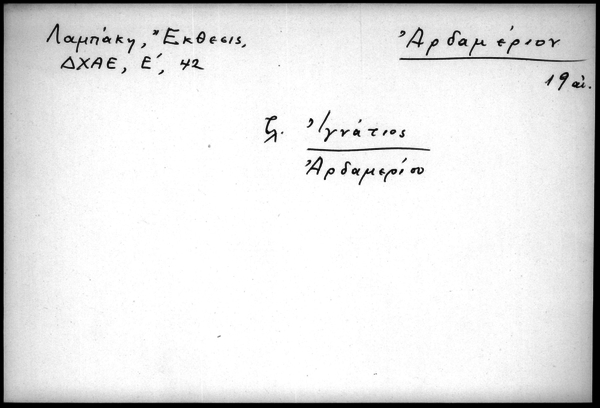 Λαμπάκη, Ἔκθεσις,
ΔΧΑΕ, Ε΄, 42
Ἀρδαμέριον
19 αἰ.
Ἰγνάτιος
Ἀρδαμερίου